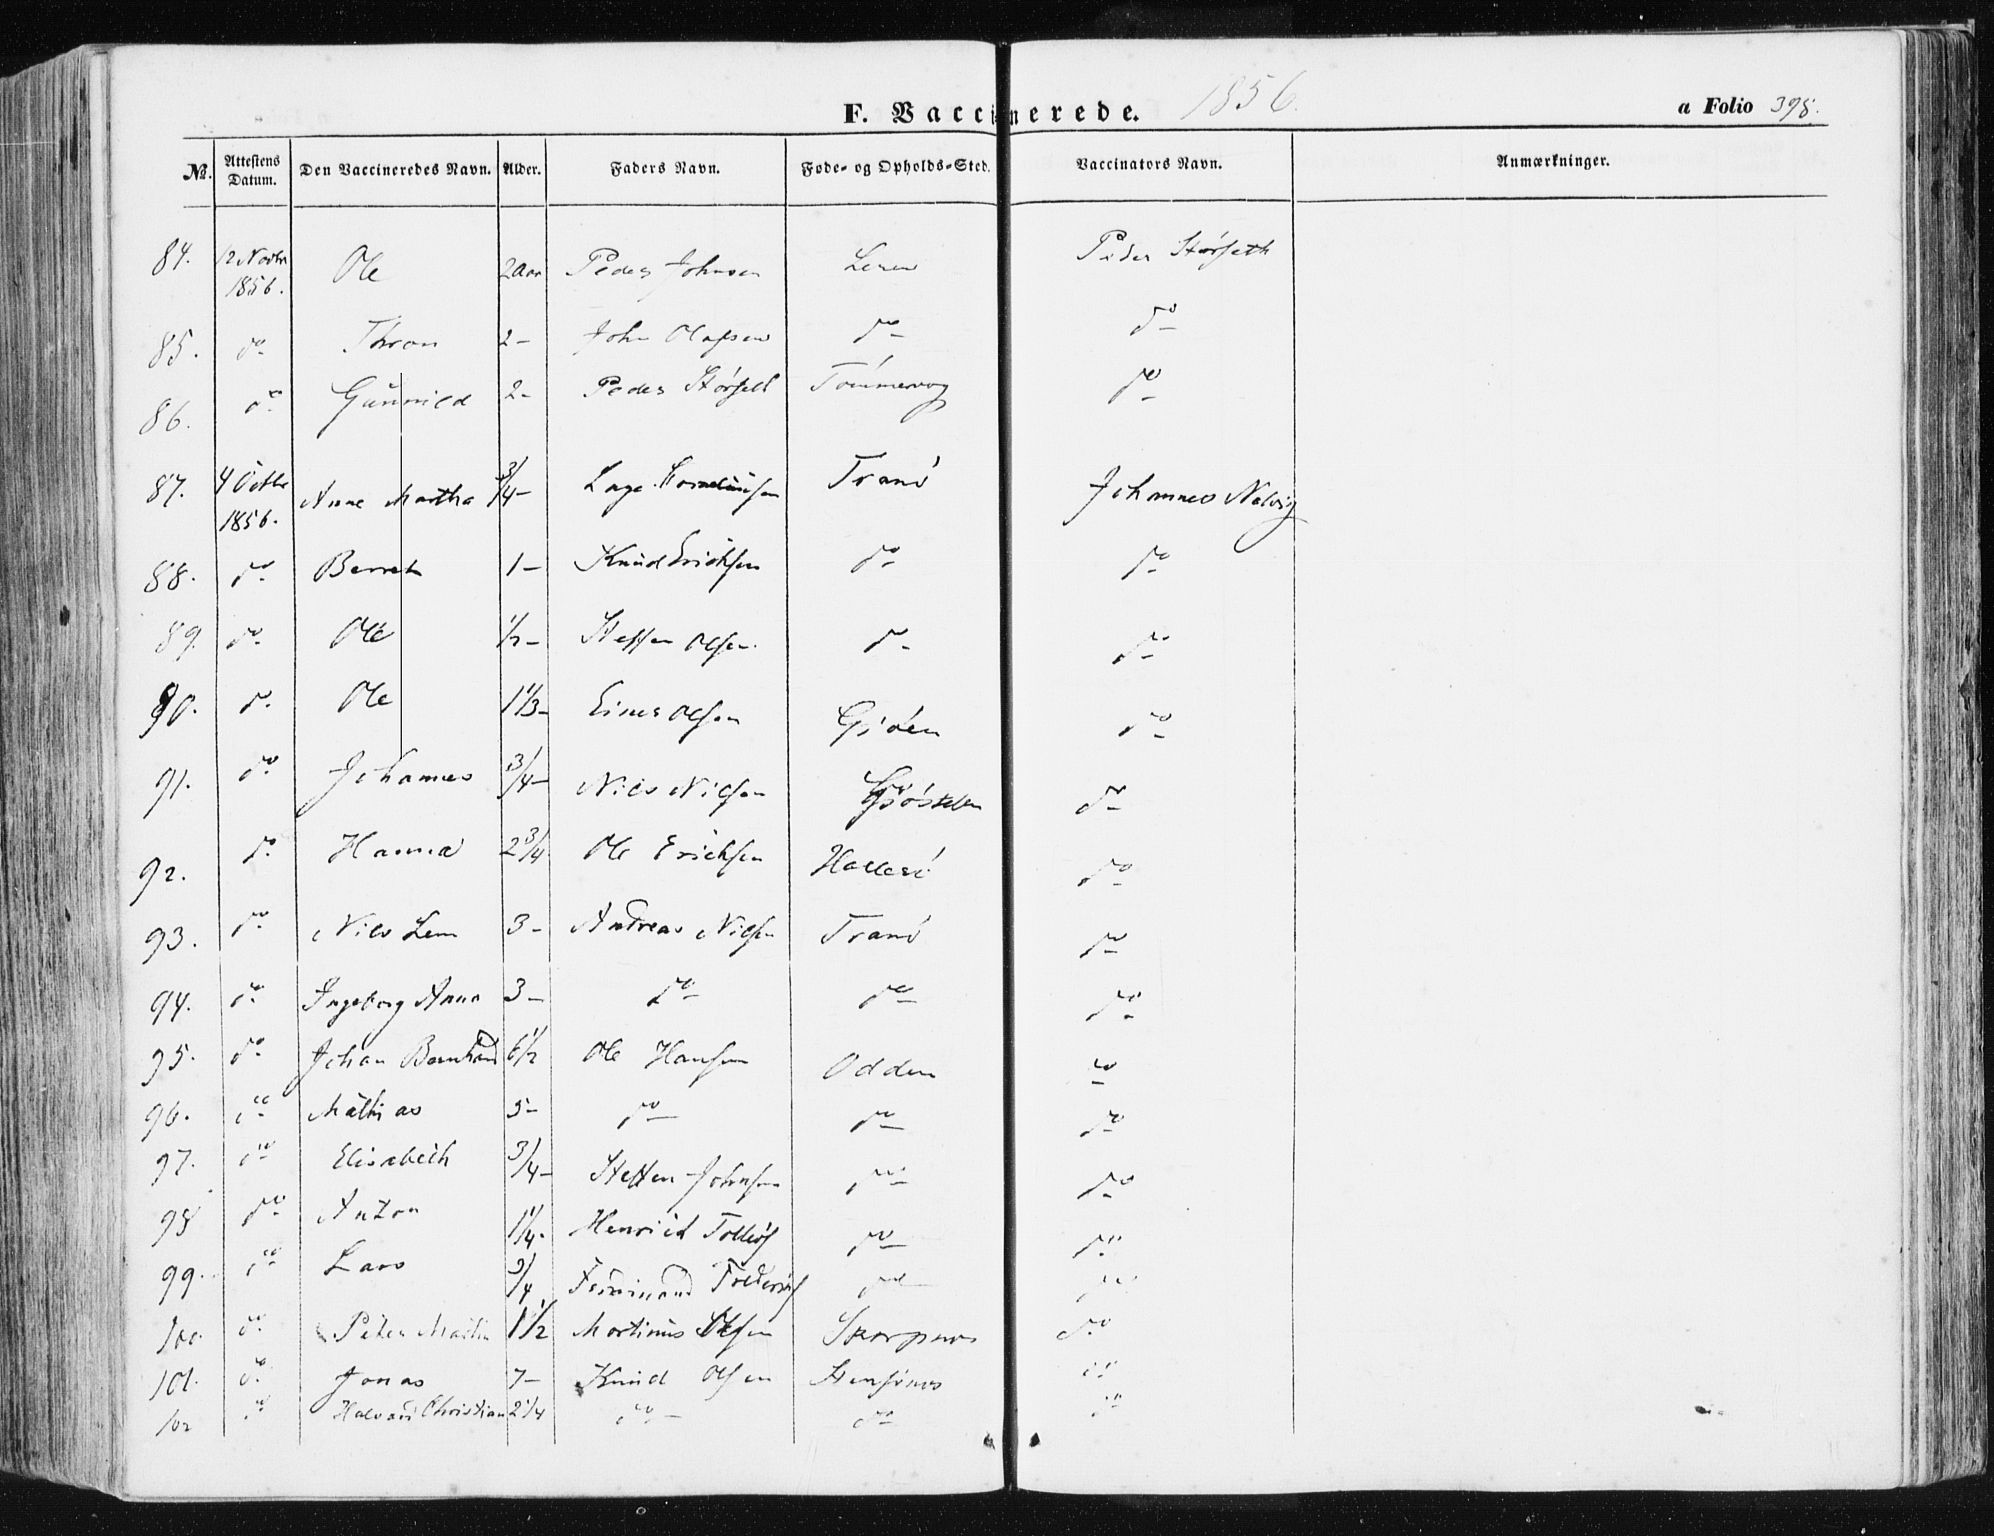 F. Vaccinerede. 1856. a Folio 398.
No. Attestens Datum. Den Vaccineredes Navn. Alder. Faders Navn. Føde- og Opholds-Sted. Vaccinators Navn. Anmærkninger.
84. 12 Novbr 1856. Ole 2 Aar Peder Johnsen Leren Peder Størseth
85. do Thron 2- John Olafsen do do
86. do Gunnild 2- Peder Størseth Tömmervog do
87. 4 Octbr 1856. Anne Martha 3/4- Lage Tranö Johannes Nalvig
88. do Berret 1- Knud Erichsen do do
89. do Ole 1/2- Steffen Olsen do do
90. do Ole 1 1/3- Einer Olsen Gjöen do
91. do Johannes 3/4- Nils Nilsen do
92. do Hanna 2 3/4 Ole Erichsen Hallesö do
93. do Nils Lem 3- Andreas Nilsen Tranö do
94. do Ingeborg Anna 3- do do do
95. do Johan Bernhard 6 1/2 Ole Hansen Odden do
96. do Mathias 5- do do do
97. do Elisabeth 3/4- Steffen Johnsen do do
98 do Anton 1 1/4. Henrich do do
99. do Lars 3/4 Ferdinand do do
100. do Peter Martin 1 1/2 Martinus Olsen Skorpnes do
101. do Jonas 7- Knud Olsen Stensönes do
102 do Halvard Christian 2 1/4 do do do